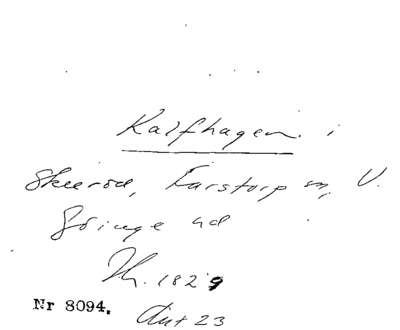 Kalfhagen i
Skeeröd, Farstorp sn, V.
Göinge hd
Th. 1829
Nr 8094. Aut 23